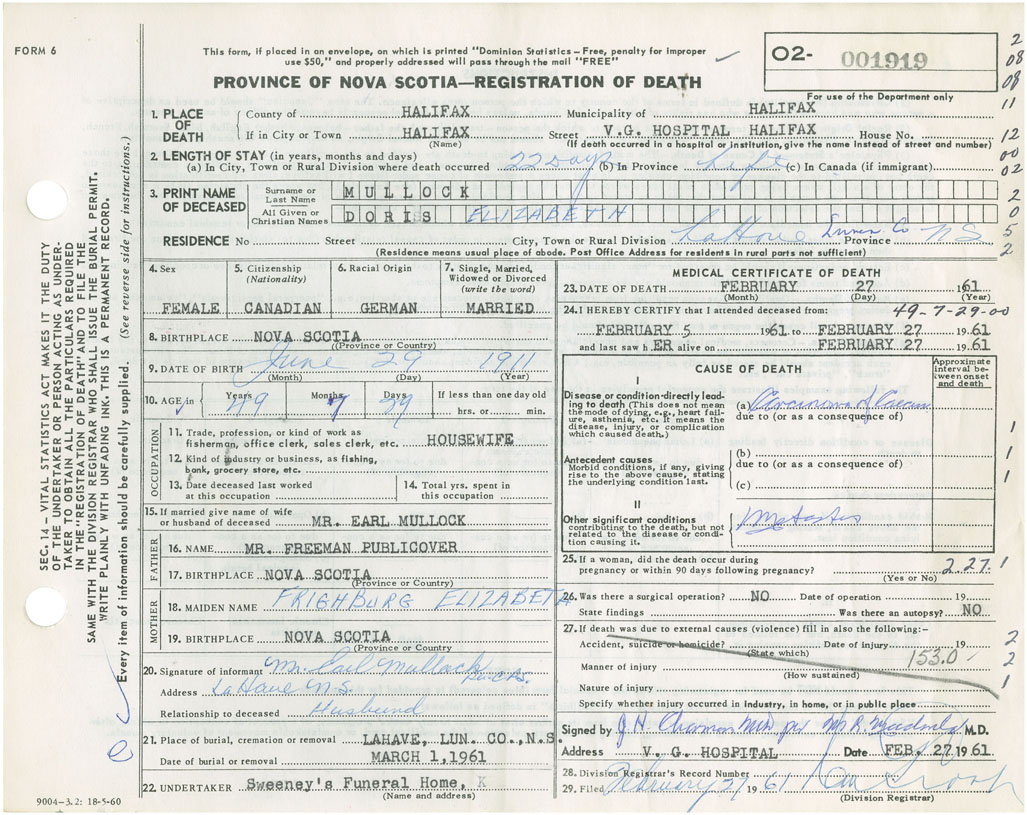 FORM 6
This form, if placed in an envelope, on which is printed "Dominion Statistics – Free, penalty for improper
use $50," and properly addressed will pass through the mail "FREE"
PROVINCE OF NOVA SCOTIA—REGISTRATION OF DEATH
O2- 001919
For use of the Department only
2
08
08
11
12
00
02
2
0
5
2
1. PLACE OF DEATH
County of HALIFAX Municipality of HALIFAX
If in City or Town HALIFAX Street V.G. HOSPITAL HALIFAX House No.
(Name) (If death occurred in a hospital or institution, give name instead of street and number)
2. LENGTH OF STAY (in years, months and days)
(a) In City, Town or Rural Division where death occurred 22 days (b) In Province life (c) In Canada (if immigrant)
3. PRINT NAME OF DECEASED
Surname or Last Name MULLOCK
All Given or Christian Names DORIS ELIZABETH
RESIDENCE No. Street City, Town or Rural Division LaHave Lunen. Co Province NS
(Residence means usual place of abode. Post Office Address for residents in rural parts not sufficient)
4. Sex
FEMALE
5. Citizenship (Nationality)
CANADIAN
6. Racial Origin
GERMAN
7. Single, Married, Widowed or Divorced (write the word)
MARRIED
8. BIRTHPLACE NOVA SCOTIA
(Province or Country)
9. DATE OF BIRTH June 29 1911
(Month) (Day) (Year)
10. AGE in Years 49 Months 7 Days 29 If less than one day old
hrs. or min.
OCCUPATION
11. Trade, profession, or kind of work as
fisherman, office clerk, sales clerk, etc. HOUSEWIFE
12. Kind of industry or business, as fishing,
bank, grocery store, etc.
13. Date deceased last worked at this occupation
14. Total yrs. spent in this occupation
15. If married give name of wife
or husband of deceased MR. EARL MULLOCK
FATHER
16. NAME MR. FREEMAN PUBLICOVER
17. BIRTHPLACE NOVA SCOTIA
(Province or Country)
MOTHER
18. MAIDEN NAME FRIGHBURG ELIZABETH
19. BIRTHPLACE NOVA SCOTIA
(Province or Country)
20. Signature of informant Mr. Earl Mullock
Address LaHave N.S.
Relationship to deceased Husband
21. Place of burial, cremation or removal LAHAVE, LUN. CO., N.S.
Date of burial or removal MARCH 1,1961
22. UNDERTAKER Sweeney's Funeral Home, K
(Name and address)
9004—3.2: 18-5-60
MEDICAL CERTIFICATE OF DEATH
23. DATE OF DEATH FEBRUARY 27 1961
(Month) (Day) (Year)
24. I HEREBY CERTIFY that I attended deceased from: 49-7-29-00
FEBRUARY 5 1961 to FEBRUARY 27 1961
and last saw hER alive on FEBRUARY 27 1961
CAUSE OF DEATH
Approximate interval between onset and death
I
Disease or condition directly leading to death (This does not mean
the mode of dying, e.g., heart failure, asthenia, etc. It means the
disease, injury, or complication which caused death.)
(a) Carcinoma of Cecum
due to (or as a consequence of)
Antecedent causes
Morbid conditions, if any, giving
rise to the above cause, stating
the underlying condition last.
(b)
due to (or as a consequence of)
(c)
II
Other significant conditions
contributing to the death, but not
related to the disease or condition causing it.
1
1
1
25. If a woman, did the death occur during
pregnancy or within 90 days following pregnancy? 2.27.1
(Yes or No)
26. Was there a surgical operation? NO Date of operation 19
State findings Was there an autopsy? NO
27. If death was due to external causes (violence) fill in also the following:-
Accident, suicide or homicide? Date of injury 19
(State which) 153.0
Manner of injury
(How sustained)
Nature of injury
Specify whether injury occurred in industry, in home, or in public place
2
2
1
Signed by J H Charman M.D. per M.D.
Address V. G. HOSPITAL Date FEB. 27 1961
28. Division Registrar's Record Number
29. Filed February 27 1961
(Division Registrar)
SEC. 14 – VITAL STATISTICS ACT MAKES IT THE DUTY
OF THE UNDERTAKER OR PERSON ACTING AS UNDER-
TAKER TO OBTAIN ALL THE PARTICULARS REQUIRED
IN THE "REGISTRATION OF DEATH" AND TO FILE THE
SAME WITH THE DIVISION REGISTRAR WHO SHALL ISSUE THE BURIAL PERMIT.
WRITE PLAINLY WITH UNFADING INK. THIS IS A PERMANENT RECORD.
Every item of information should be carefully supplied. (See reverse side for instructions.)